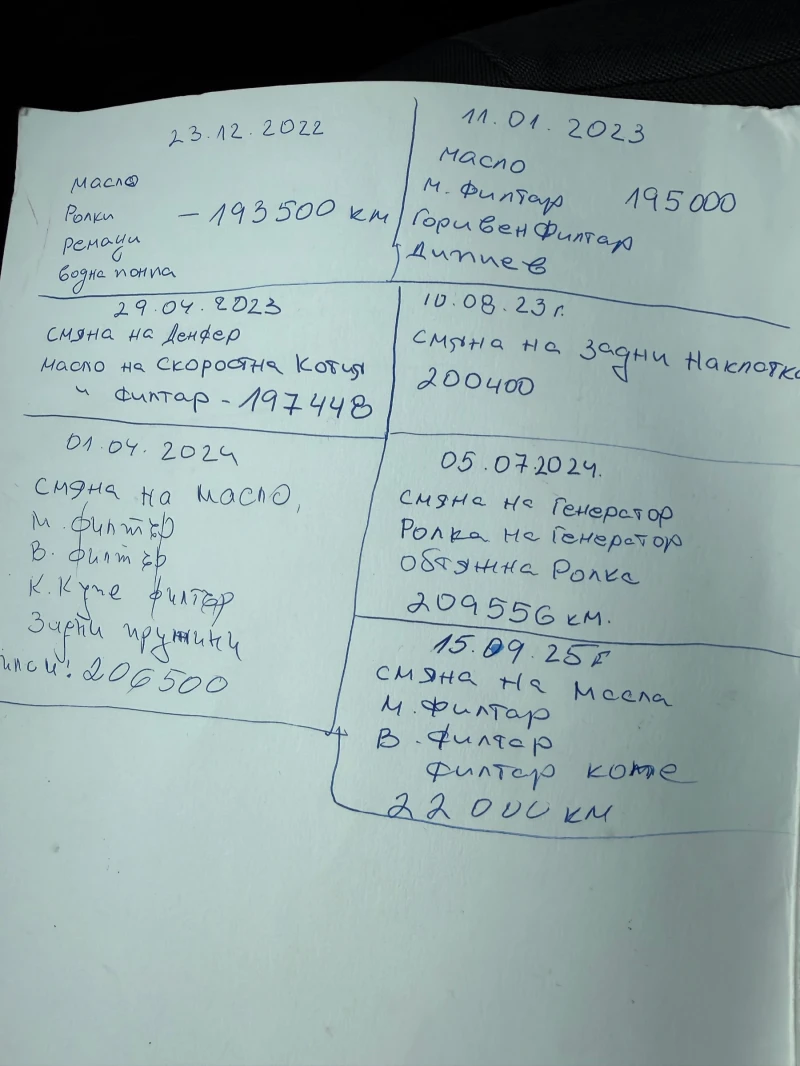 23.12.2022
масло
Ролки
– 193500 км
ремаци
водна помпа
11.01.2023
масло
м. Филтар 195000
Горивен Филтар
Дипиев
29.04.2023
смяна на Денфер
масло на Скоростна Котия
и филтар – 197448
10.08.23 г.
смяна на задни Накладка
200400
01.04.2024
смяна на масло,
м. филтър
В. филтър
К. Купе филтър
Задни пружини
206500
05.07.2024.
смяна на Генератор
Ролка на Генератор
обтяжна Ролка
209556 км.
15.09.25 г
смяна на Масла
м. Филтар
В. Филтар
филтар
22 000 км